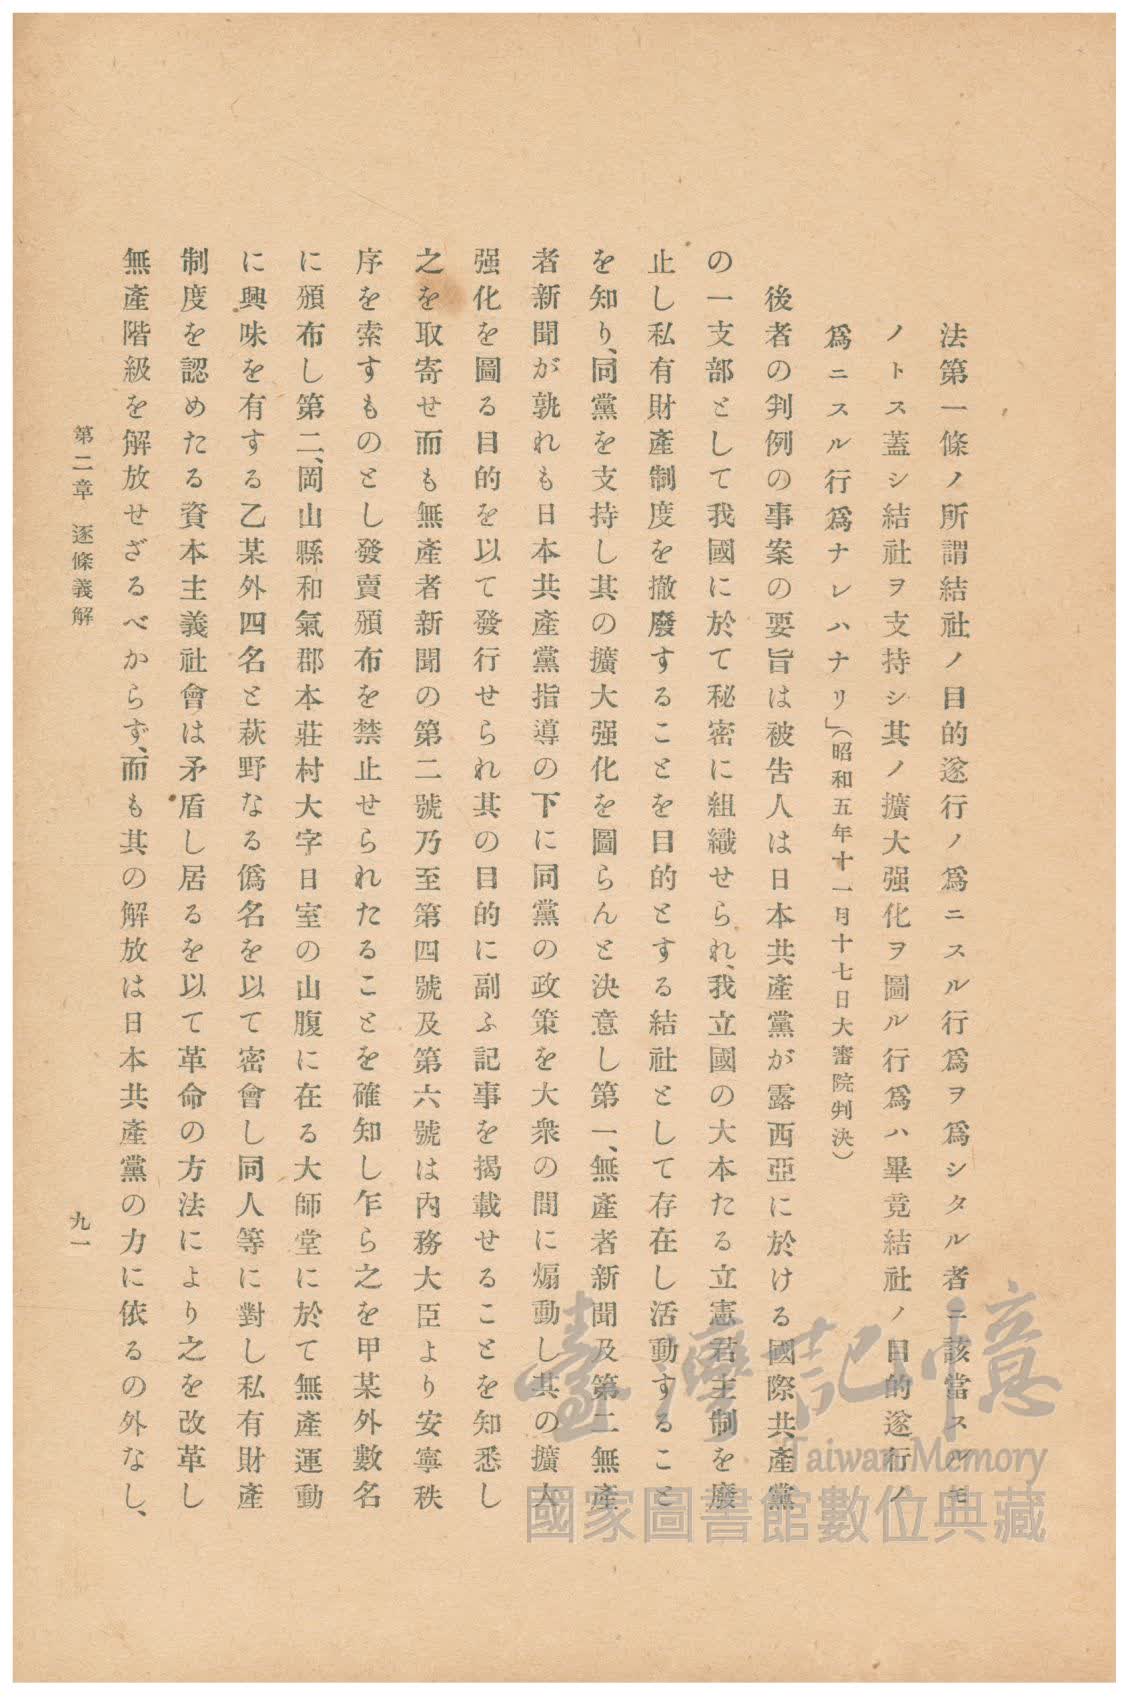 法第一條ノ所謂結社ノ目的遂行ノ爲ニスル行爲ヲ爲シタル者ニ該當スルモ
ノトス蓋シ結社ヲ支持シ其ノ擴大强化ヲ圖ル行爲ハ畢竟結社ノ目的遂行ノ
爲ニスル行爲ナレハナリ」(昭和五年十一月十七日大審院判決)
後者の判例の事案の要旨は被告人は日本共產黨が露西亞に於ける國際共產黨
の一支部として我國に於て秘密に組織せられ、我立國の大本たる立憲君主制を廢
止し私有財產制度を撤廢することを目的とする結社として存在し活動すること
を知り、同黨を支持し其の擴大强化を圖らんと決意し第一、無產者新聞及第二無產
者新聞が孰れも日本共產黨指導の下に同黨の政策を大衆の間に煽動し其の擴大
强化を圖る目的を以て發行せられ其の目的に副ふ記事を揭載せることを知悉し
之を取寄せ而も無產者新聞の第二號乃至第四號及第六號は內務大臣より安寧秩
序を索すものとし發賣頒布を禁止せられたることを確知し乍ら之を甲某外數名
に頒布し第二、岡山縣和氣郡本莊村大字日室の山腹に在る大師堂に於て無產運動
に興味を有する乙某外四名と萩野なる僞名を以て密會し同人等に對し私有財產
制度を認めたる資本主義社會は矛盾し居るを以て革命の方法により之を改革し
無產階級を解放せざるべからず、而も其の解放は日本共產黨の力に依るの外なし、
第二章 逐條義解
九一
臺灣記憶
Taiwan Memory
國家圖書館數位典藏